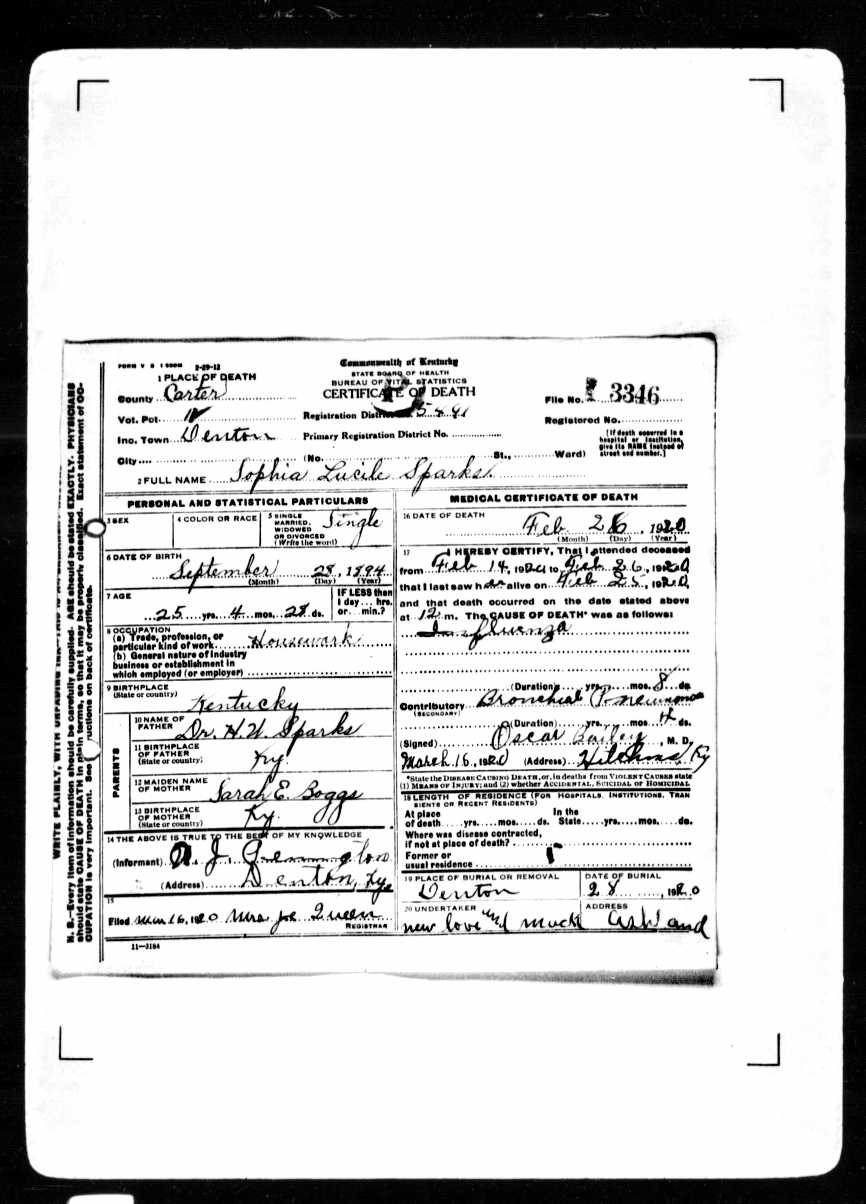 FORM V S 1 500M 2-29-12
Commonwealth of Kentucky
STATE BOARD OF HEALTH
BUREAU OF VITAL STATISTICS
CERTIFICATE OF DEATH
1 PLACE OF DEATH
County Carter
Vot. Pct.
Inc. Town Denton
City
Registration District No. 5441
Primary Registration District No.
(No. St., Ward)
File No. 3346
Registered No.
[If death occurred in a hospital or institution, give its NAME instead of street and number.]
2 FULL NAME Sophia Lucile Sparks
PERSONAL AND STATISTICAL PARTICULARS
3 SEX
4 COLOR OR RACE
5 SINGLE MARRIED, WIDOWED OR DIVORCED (Write the word) Single
6 DATE OF BIRTH
September 28, 1894
(Month) (Day) (Year)
7 AGE
25 yrs. 4 mos. 28 ds.
IF LESS than 1 day hrs. or min.?
8 OCCUPATION
(a) Trade, profession, or particular kind of work Housewark
(b) General nature of industry business or establishment in which employed (or employer)
9 BIRTHPLACE
(State or country)
Kentucky
PARENTS
10 NAME OF FATHER Dr. H. W. Sparks
11 BIRTHPLACE OF FATHER (State or country) Ky.
12 MAIDEN NAME OF MOTHER Sarah E. Boggs
13 BIRTHPLACE OF MOTHER (State or country) Ky.
14 THE ABOVE IS TRUE TO THE BEST OF MY KNOWLEDGE
(Informant)
(Address) Denton, Ky.
15
Filed Mar 16, 1920 Mrs Joe Queen
REGISTRAR
11—3184
MEDICAL CERTIFICATE OF DEATH
16 DATE OF DEATH
Feb 26, 1920
(Month) (Day) (Year)
17 I HEREBY CERTIFY, That I attended deceased
from Feb 14, 1920 to Feb 26, 1920
that I last saw her alive on Feb 25, 1920,
and that death occurred on the date stated above
at 12 m. The CAUSE OF DEATH* was as follows:
Influenza
(Duration) yrs. mos. 8 ds.
Contributory Bronchial Pneumonia
(SECONDARY)
(Duration) yrs. mos. 4 ds.
(Signed) Oscar Bailey, M. D.
March 16, 1920 (Address) Hitchins, Ky
*State the DISEASE CAUSING DEATH, or, in deaths from VIOLENT CAUSES state (1) MEANS OF INJURY; and (2) whether ACCIDENTAL, SUICIDAL or HOMICIDAL
18 LENGTH OF RESIDENCE (FOR HOSPITALS, INSTITUTIONS, TRANSIENTS OR RECENT RESIDENTS)
At place of death yrs. mos. ds. In the State yrs. mos. ds.
Where was disease contracted,
if not at place of death?
Former or
usual residence
19 PLACE OF BURIAL OR REMOVAL
Denton
DATE OF BURIAL
28, 1920
20 UNDERTAKER
new love and
ADDRESS
Ashland
N. B.—Every item of information should be carefully supplied. AGE should be stated EXACTLY. PHYSICIANS
should state CAUSE OF DEATH in plain terms, so that it may be properly classified. Exact statement of OC-
CUPATION is very important. See ructions on back of certificate.